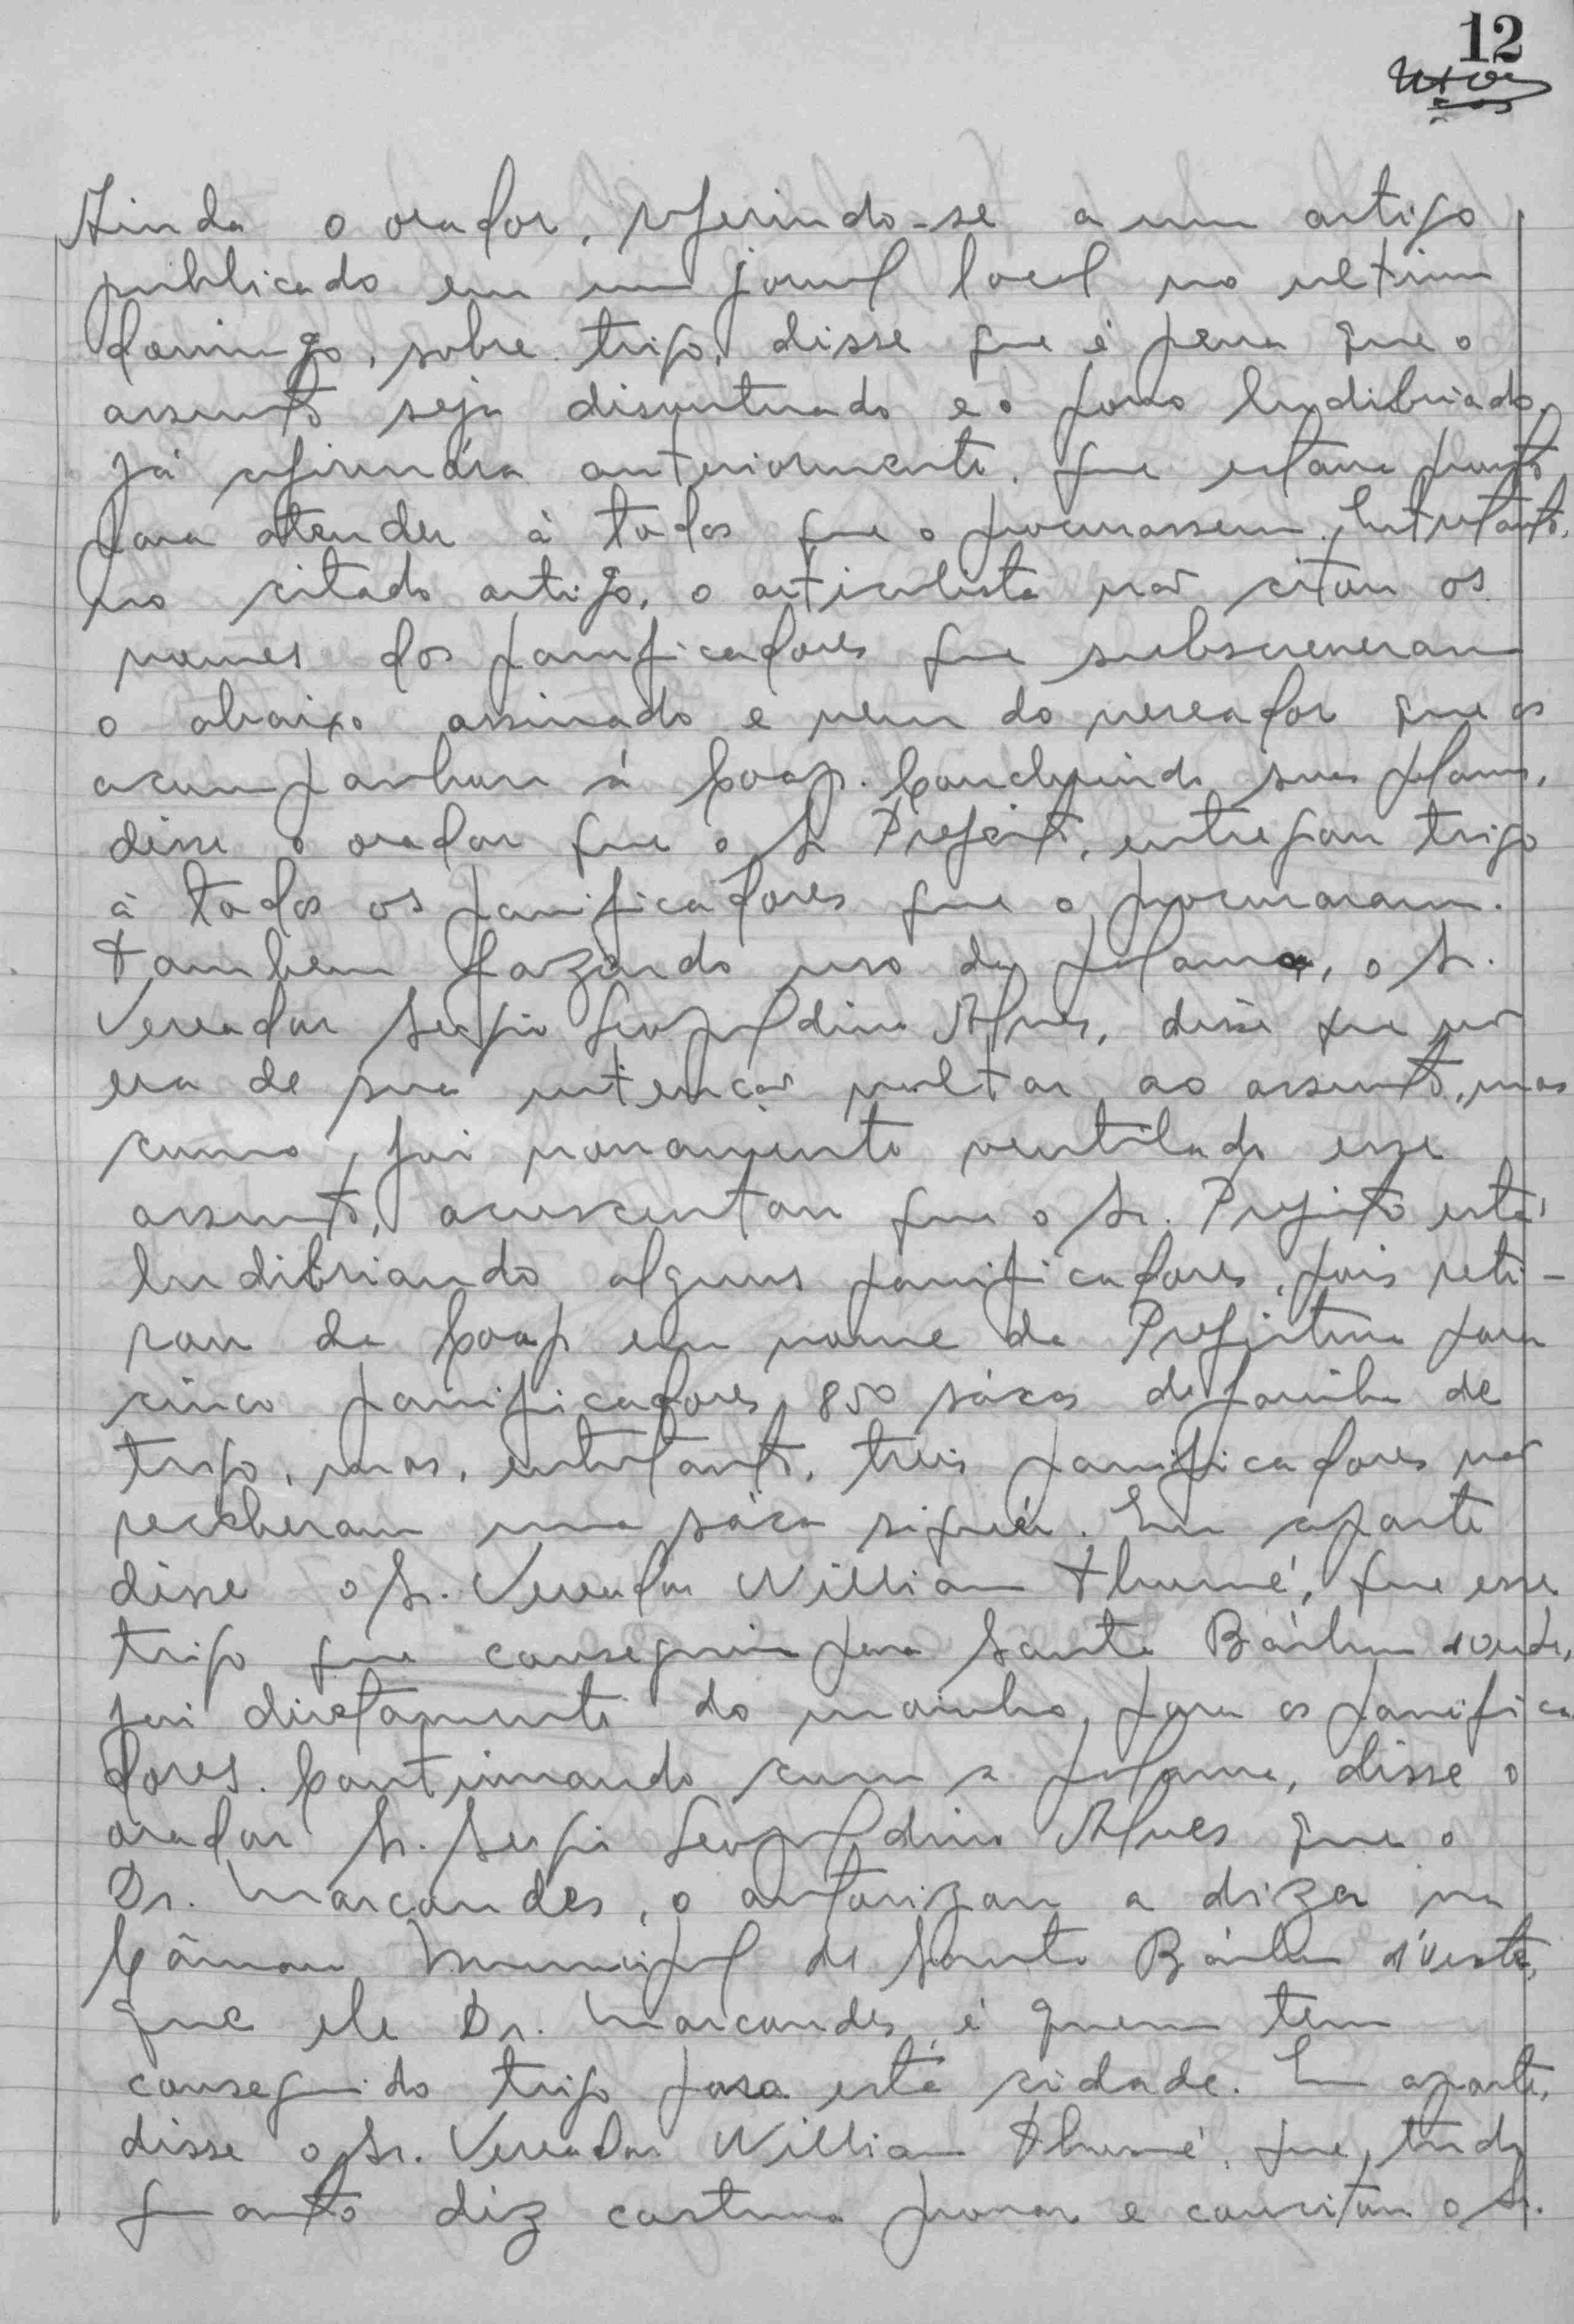 12
Ainda o orador, referindo-se a um artigo
publicado em um jornal local no ultimo
domingo, sobre trigo, disse que é pena que o
assunto seja disvirtuado e o povo ludibriado,
já afirmára anteriormente, que estava pronto
para atender à todos que o procurassem. Entretanto,
no citado artigo, o articulista não citou os
nomes dos panificadores que subscreveram
o abaixo assinado e nem do vereador que os
acompanhou à Coap. Concluindo sua palavra,
disse o orador que o Sr Prefeito, entregou trigo
à todos os panificadores que o procuraram.
Tambem fazendo uso da palavra, o Sr.
Vereador Sergio Leopoldino Alves, disse que não
era de sua intenção voltar ao assunto, mas
como foi novamente ventilado esse
assunto, acrescentou que o Sr. Prefeito está
ludibriando alguns panificadores, pois reti-
rou da Coap em nome da Prefeitura para
cinco panificadores 850 sácas de farinha de
trigo, mas, entretanto, treis panificadores não
receberam uma sáca siquér. Em aparte
disse o Sr. Vereador Willian Thumé, que esse
trigo que conseguiu para Santa Bárbara d'oeste,
foi diretamente do moinho, para os panifica
dores. Continuando com a palavra, disse o
orador Sr. Sergio Leopoldino Alves que o
Dr. Marcondes, o autorizou a dizer na
Câmara Municipal de Santa Bárbara d'Oeste,
que ele Dr. Marcondes, é quem tem
conseguido trigo para esta cidade. Em aparte,
disse o Sr. Vereador Willian Thumé, que, tudo
quanto diz costuma provar e concitou o Sr.